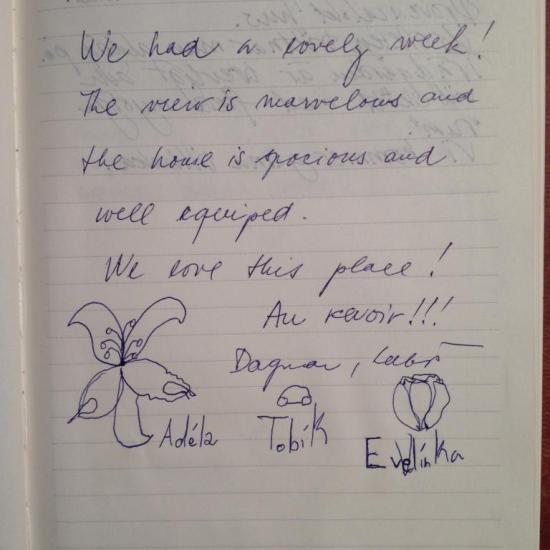 We had a lovely week!
The view is marvelous and
the home is spacious and
well equiped.
We love this place!
Au revoir!!!
Dagmar,
Adéla Tobík
Evelínka